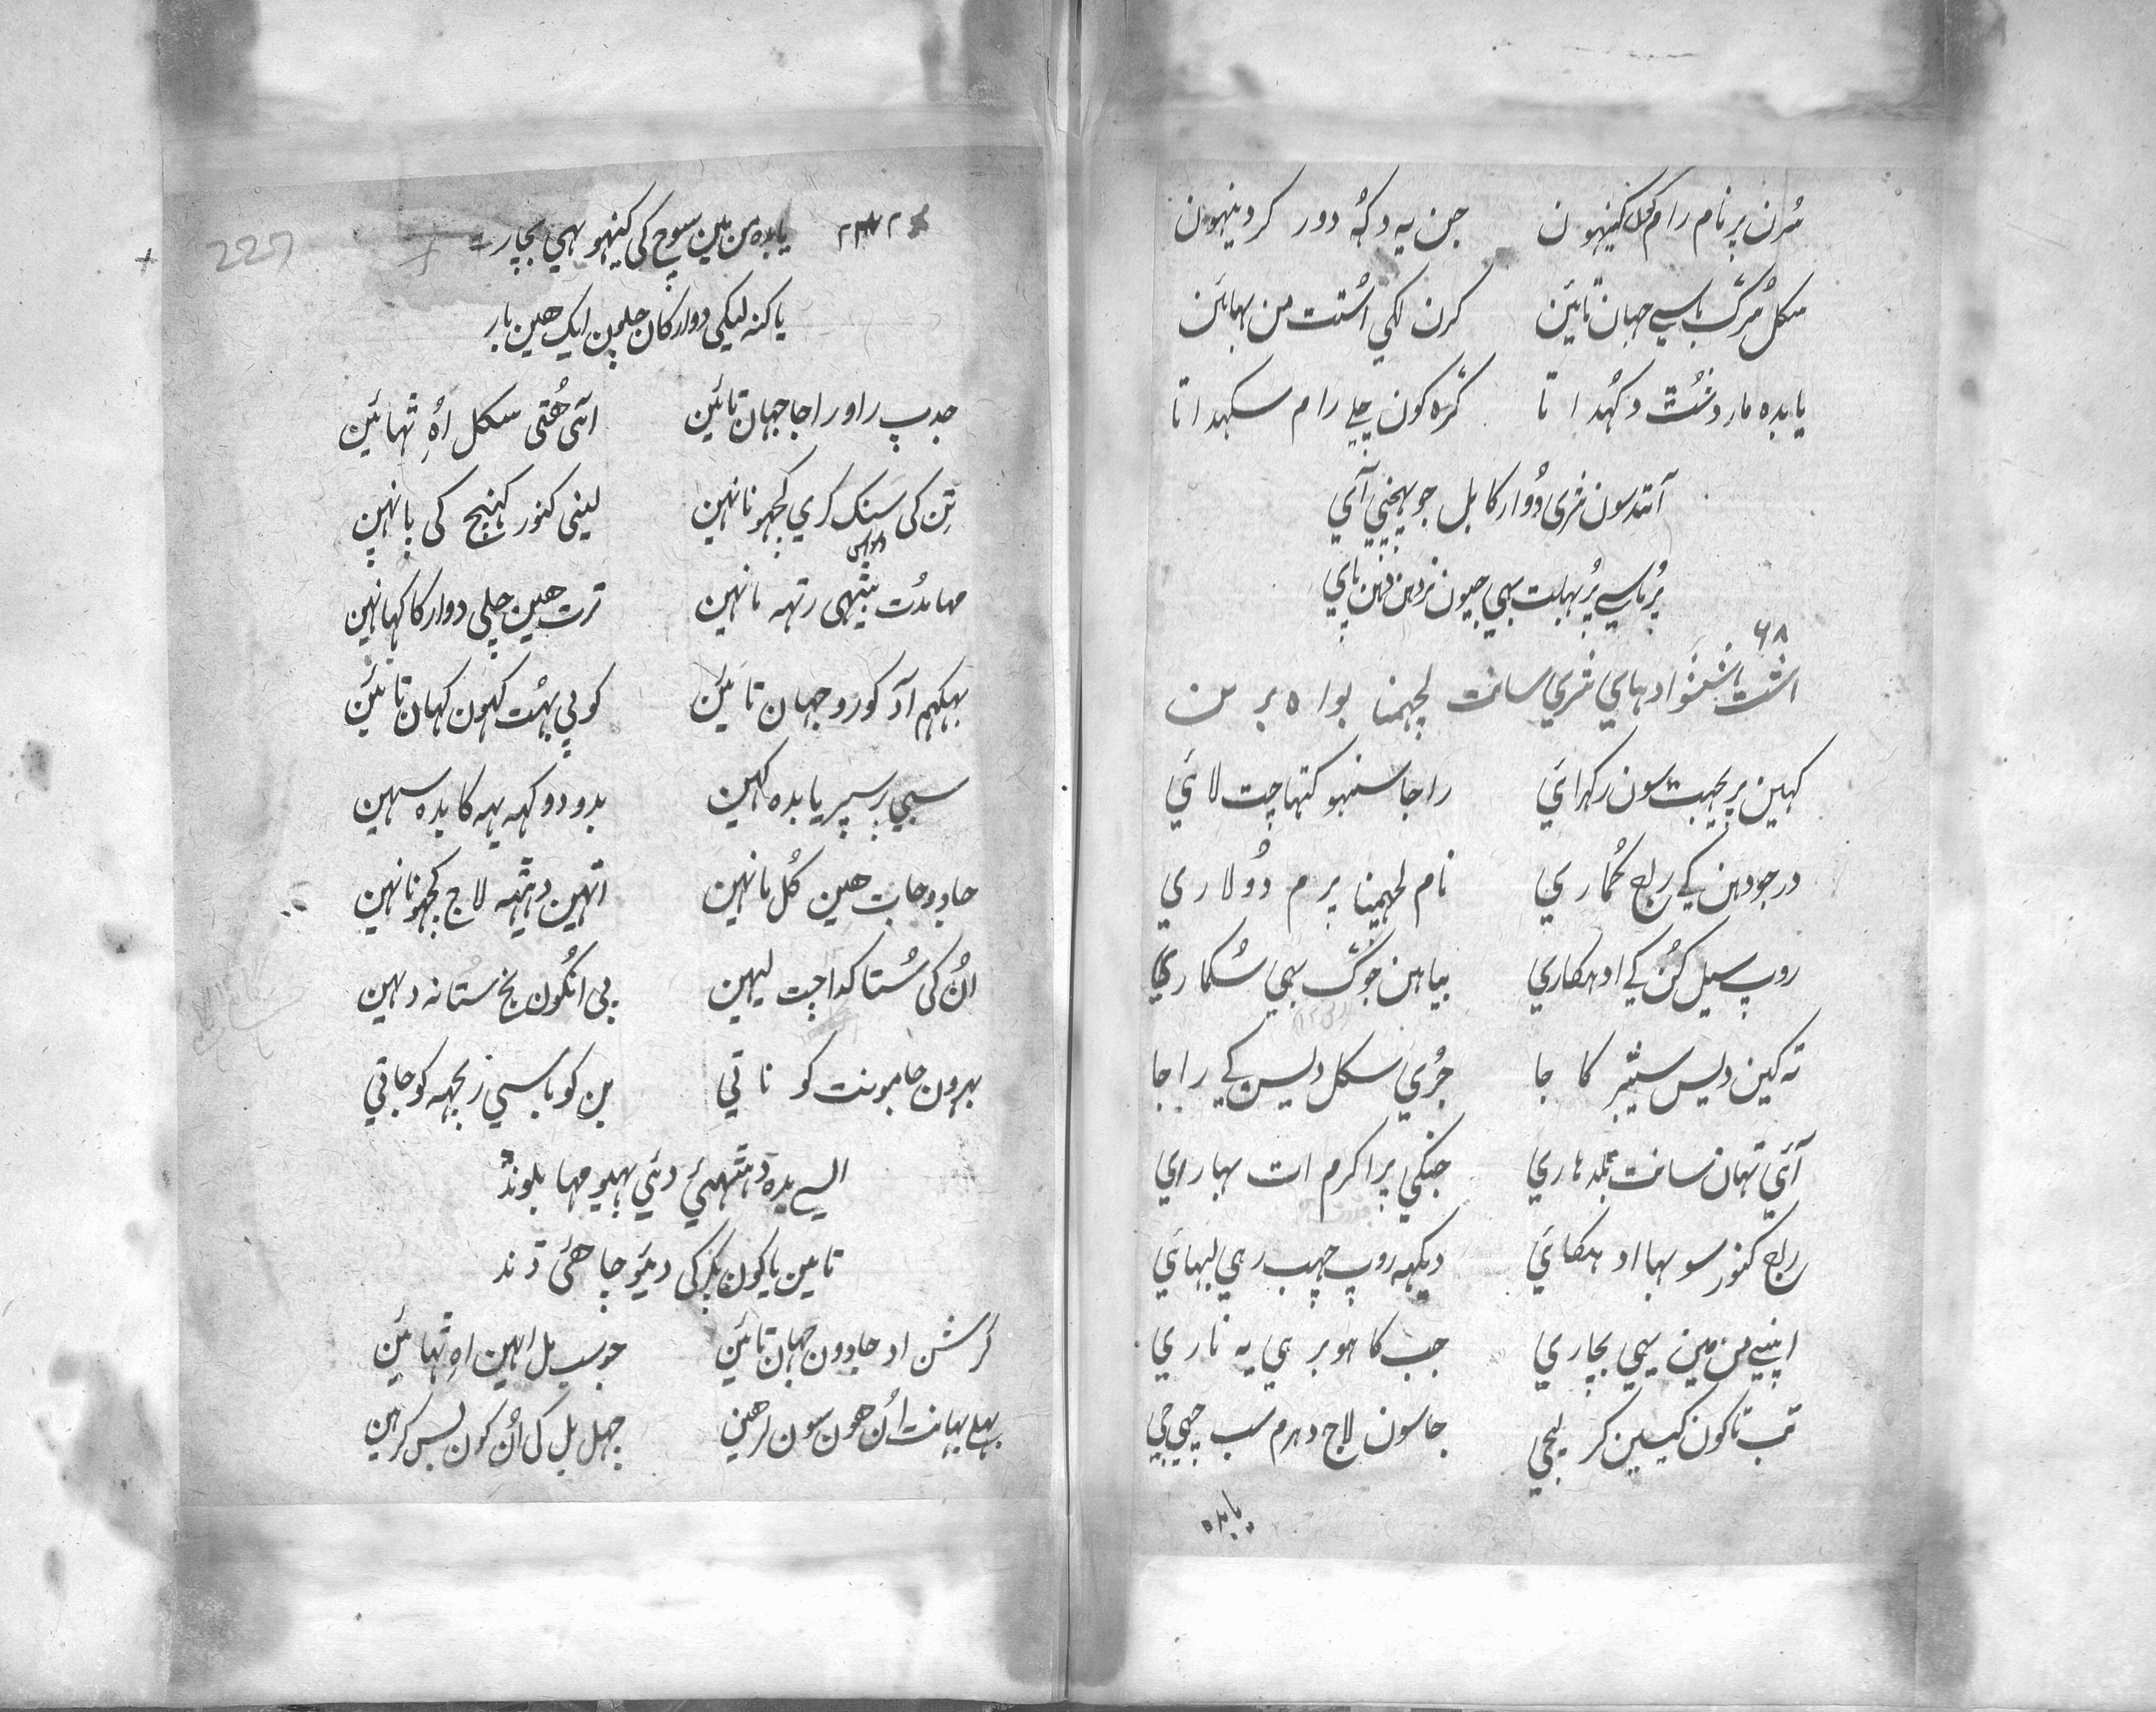 سُرن پرنام رام کل کینہون جن یہ دکہُہ دور کر دینہون
سکل سُرگ باسی جہان تائین کرن لگی اُستت من بہائین
یا بدہ مار دشٹ دکہُداتا گرہ کون چلے رام سکہداتا
آنند سون شری دُوارکا بل جو پہنچی آی
پُرباسی پُربہلت بہی جیون نردہن دہن پای
۶۸
کہین پریچہت سون رکہرای راجا سنہو کتہا چت لای
درجودہن کے راج کُماری نام لچہمنا پرم دُولاری
روپ سیل گُن کے ادہکاری بیاہن جوگ بہی سُکماری
تہ کین دیس سیمبر کاجا جُری سکل دیس کے راجا
آئی تہان سانت بلدہاری جنکی پراکرم ات بہاری
راج کنور سوبہا ادہکای دیکہہ روپ چہب رہی لبہای
اپنے من مین یہی بچاری جب کاہو بر ہی یہ ناری
تب تاکون کیسین کر لیجی جاسون لاج دہرم سب چہیجی
یا بدہ
یا بدہ من مین سوچ کی کینہو یہی بچار
یا کنہ لیکی دوارکان چلہن ایک ہین بار
جدپ راو راجا جہان تائین اتی ہتی سکل اُہ ٹہائین
تن کی سنک کری کچہو نانہین لینی کنور کہنیچ کی بانہین
مہامدُت بیٹہی رتہہ مانہین ترت ہین چلی دوارکا کہانہین
بہیکہم آد کورو جہان تائین کوپی بہت کہون کہان تائین
سبی پرسپر یا بدہ کہین بدو دوکہہ یہہ کا بدہ سہین
جادو جات ہین کُل مانہین انہین دہیٹہہ لاج کچہو نانہین
اُن کی سُتا کداچت لیہین پی انکون نج ستا نہ دیہین
بہرون جامونت کو ناتی بن کو باسی رنچہہ کو جاتی
ایسے بدہ دہیٹہئی دئی بہیو مہا بلوند
تا مین یا کون پکر کی دیئو چاہئی دند
کرشن اد جادون جہان تائین جو سب مل اہین اہ ٹہائین
بہلے بہانت اُن ہون سون لرہین چہل بل کی اُن کون بس کرہین